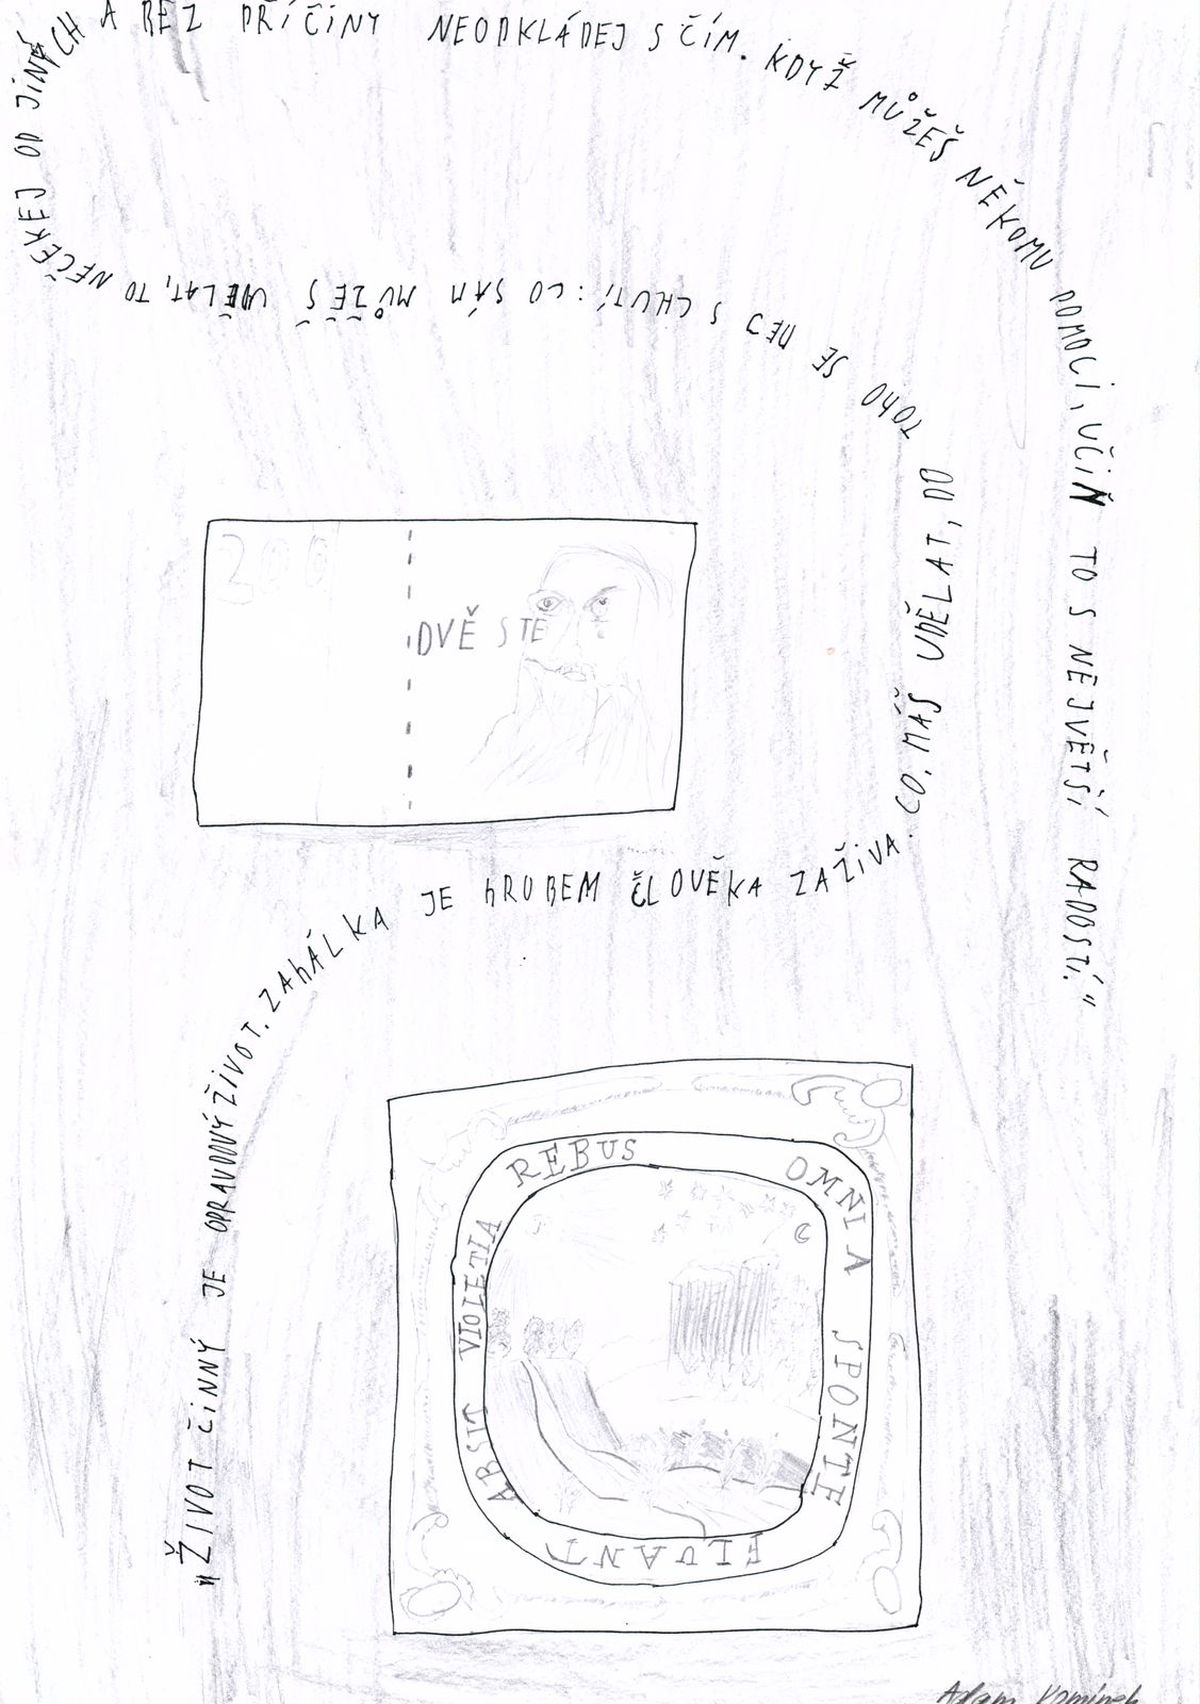 „ŽIVOT ČINNÝ JE OPRAVDOVÝ ŽIVOT. ZAHÁLKA JE HROBEM ČLOVĚKA ZAŽIVA. CO, MÁŠ UDĚLAT, DO TOHO SE DEJ S CHUTÍ: CO SÁM MŮŽEŠ UDĚLAT, TO NEČEKEJ OD JINÝCH A BEZ PŘÍČINY NEODKLÁDEJ S ČÍM. KDYŽ MŮŽEŠ NĚKOMU POMOCI, UČIŇ TO S NEJVĚTŠÍ RADOSTÍ.“
200
DVĚ STE
OMNIA SPONTE FLUANT ABSIT VIOLETIA REBUS
Adam